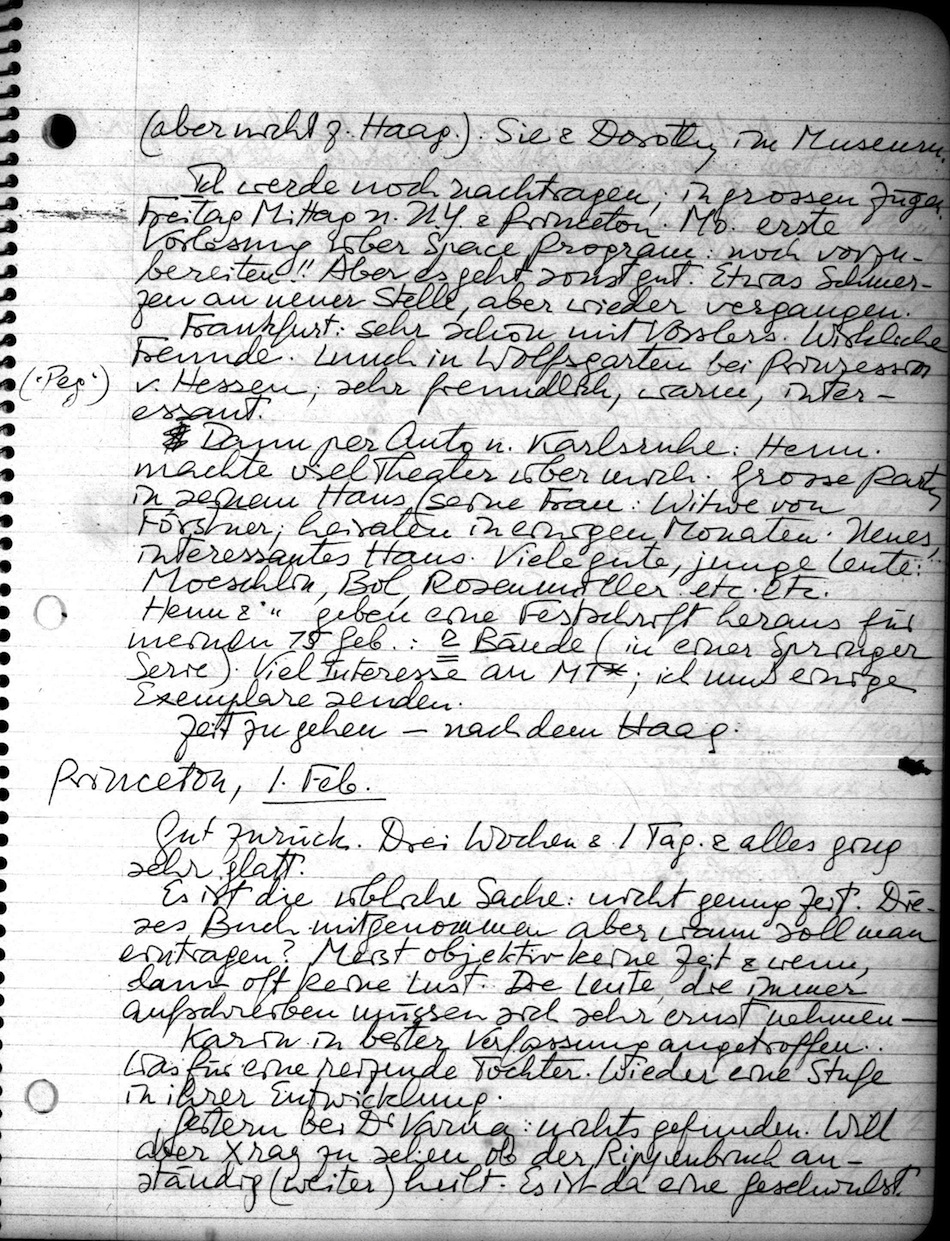 (aber nicht z. Haag.) Sie & Dorothy im Museum.
Ich werde noch nachtragen, in grossen Zügen
Freitag Mittag n. N.Y. & Princeton. Mo. erste
Vorlesung über Space Program: noch vorzu-
bereiten!! Aber es geht sonst gut. Etwas Schmer-
zen an neuer Stelle, aber wieder vergangen.
Frankfurt: sehr schön mit Vosslers. Wirkliche
Freunde. Lunch in Wolfsgarten bei Prinzessin
("Peg") v. Hessen; sehr freundlich, warm, inter-
essant.
Dann per Auto n. Karlsruhe: Henn.
machte viel Theater über mich. Grosse Party
in seinem Haus, seine Frau: Witwe von
Förstner; heiraten in einigen Monaten. Neues,
interessantes Haus. Viele gute, junge Leute:
Moeschlin, Bol, Rosenmüller etc. etc.
Henn & " geben eine Festschrift heraus für
meinen 75 Geb.: 2 Bände (in einer Springer
Serie). Viel Interesse an MT*; ich muss einige
Exemplare senden.
Zeit zu gehen – nach dem Haag.
Princeton, 1. Feb.
Gut zurück. Drei Wochen & 1 Tag. & alles ging
sehr glatt.
Es ist die übliche Sache: nicht genug Zeit. Die-
ses Buch mitgenommen aber wann soll man
eintragen? Meist objektiv keine Zeit & wenn,
dann oft keine Lust. Die Leute, die immer
aufschreiben müssen sich sehr ernst nehmen –
Karin in bester Verfassung angetroffen.
Was für eine reizende Tochter. Wieder eine Stufe
in ihrer Entwicklung.
Gestern bei Dr Varna: nichts gefunden. Will
aber Xray zu sehen ob der Rippenbruch an-
ständig (weiter) heilt. Es ist da eine Geschwulst.